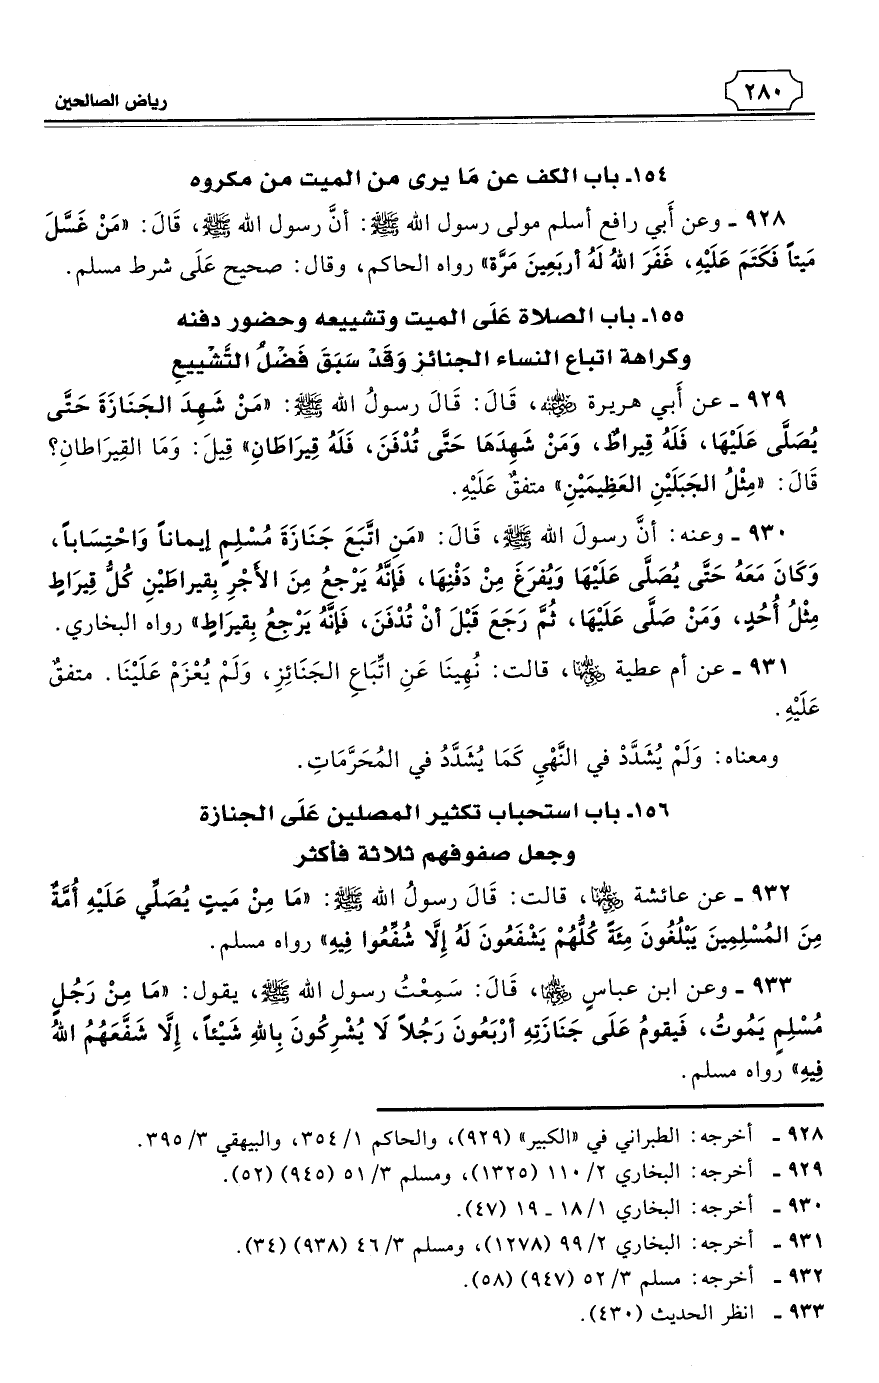 ٢٨٠
رياض الصالحين
١٥٤ـ باب الكف عن مَا يرى من الميت من مكروه
٩٢٨ ـ وعن أَبي رافع أسلم مولى رسول الله ﷺ: أنَّ رسول الله ﷺ، قَالَ: «مَنْ غَسَّلَ
مَيتاً فَكَتَمَ عَلَيْهِ، غَفَرَ اللهُ لَهُ أربَعِينَ مَرَّة» رواه الحاكم، وقال: صحيح عَلَى شرط مسلم.
١٥٥ـ باب الصلاة عَلَى الميت وتشييعه وحضور دفنه
وكراهة اتباع النساء الجنائز وَقَدْ سَبَقَ فَضْلُ التَّشْيِيعِ
٩٢٩ ـ عن أَبي هريرة رضي الله عنه، قَالَ: قَالَ رسولُ الله ﷺ: «مَنْ شَهِدَ الجَنَازَةَ حَتَّى
يُصَلَّى عَلَيْهَا، فَلَهُ قِيراطٌ، وَمَنْ شَهِدَهَا حَتَّى تُدْفَنَ، فَلَهُ قِيرَاطَانِ» قِيلَ: وَمَا القِيرَاطانِ؟
قَالَ: «مِثْلُ الجَبَلَيْنِ العَظِيمَيْنِ» متفقٌ عَلَيْهِ.
٩٣٠ ـ وعنه: أنَّ رسولَ الله ﷺ، قَالَ: «مَنِ اتَّبَعَ جَنَازَةَ مُسْلِمٍ إيماناً وَاحْتِسَاباً،
وَكَانَ مَعَهُ حَتَّى يُصَلَّى عَلَيْهَا وَيُفرَغَ مِنْ دَفْنِهَا، فَإنَّهُ يَرْجعُ مِنَ الأَجْرِ بِقيراطَيْنِ كُلُّ قِيرَاطٍ
مِثْلُ أُحُدٍ، وَمَنْ صَلَّى عَلَيْهَا، ثُمَّ رَجَعَ قَبْلَ أنْ تُدْفَنَ، فَإنَّهُ يَرْجِعُ بِقيرَاطٍ» رواه البخاري.
٩٣١ ـ عن أم عطية رضي الله عنها، قالت: نُهِينَا عَنِ اتِّبَاعِ الجَنَائِزِ، وَلَمْ يُعْزَمْ عَلَيْنَا. متفقٌ
عَلَيْهِ.
ومعناه: وَلَمْ يُشَدَّدْ في النَّهْيِ كَمَا يُشَدَّدُ في المُحَرَّمَاتِ.
١٥٦ـ باب استحباب تكثير المصلين عَلَى الجنازة
وجعل صفوفهم ثلاثة فأكثر
٩٣٢ ـ عن عائشة رضي الله عنها، قالت: قَالَ رسولُ الله ﷺ: «مَا مِنْ مَيتٍ يُصَلِّي عَلَيْهِ أُمَّةٌ
مِنَ المُسْلِمِينَ يَبْلُغُونَ مِئَةً كُلُّهُمْ يَشْفَعُونَ لَهُ إلَّا شُفِّعُوا فِيهِ» رواه مسلم.
٩٣٣ ـ وعن ابن عباسٍ رضي الله عنهما، قَالَ: سَمِعْتُ رسول الله ﷺ، يقول: «مَا مِنْ رَجُلٍ
مُسْلِمٍ يَمُوتُ، فَيقومُ عَلَى جَنَازَتِهِ أرْبَعُونَ رَجُلاً لَا يُشْرِكُونَ بِاللهِ شَيْئاً، إلَّا شَفَّعَهُمُ اللهُ
فِيهِ» رواه مسلم.
٩٢٨ ـ أخرجه: الطبراني في «الكبير» (٩٢٩)، والحاكم ١/ ٣٥٤، والبيهقي ٣/ ٣٩٥.
٩٢٩ ـ أخرجه: البخاري ٢/ ١١٠ (١٣٢٥)، ومسلم ٣/ ٥١ (٩٤٥) (٥٢).
٩٣٠ ـ أخرجه: البخاري ١/ ١٨ ـ ١٩ (٤٧).
٩٣١ ـ أخرجه: البخاري ٢/ ٩٩ (١٢٧٨)، ومسلم ٣/ ٤٦ (٩٣٨) (٣٤).
٩٣٢ ـ أخرجه: مسلم ٣/ ٥٢ (٩٤٧) (٥٨).
٩٣٣ ـ انظر الحديث (٤٣٠).